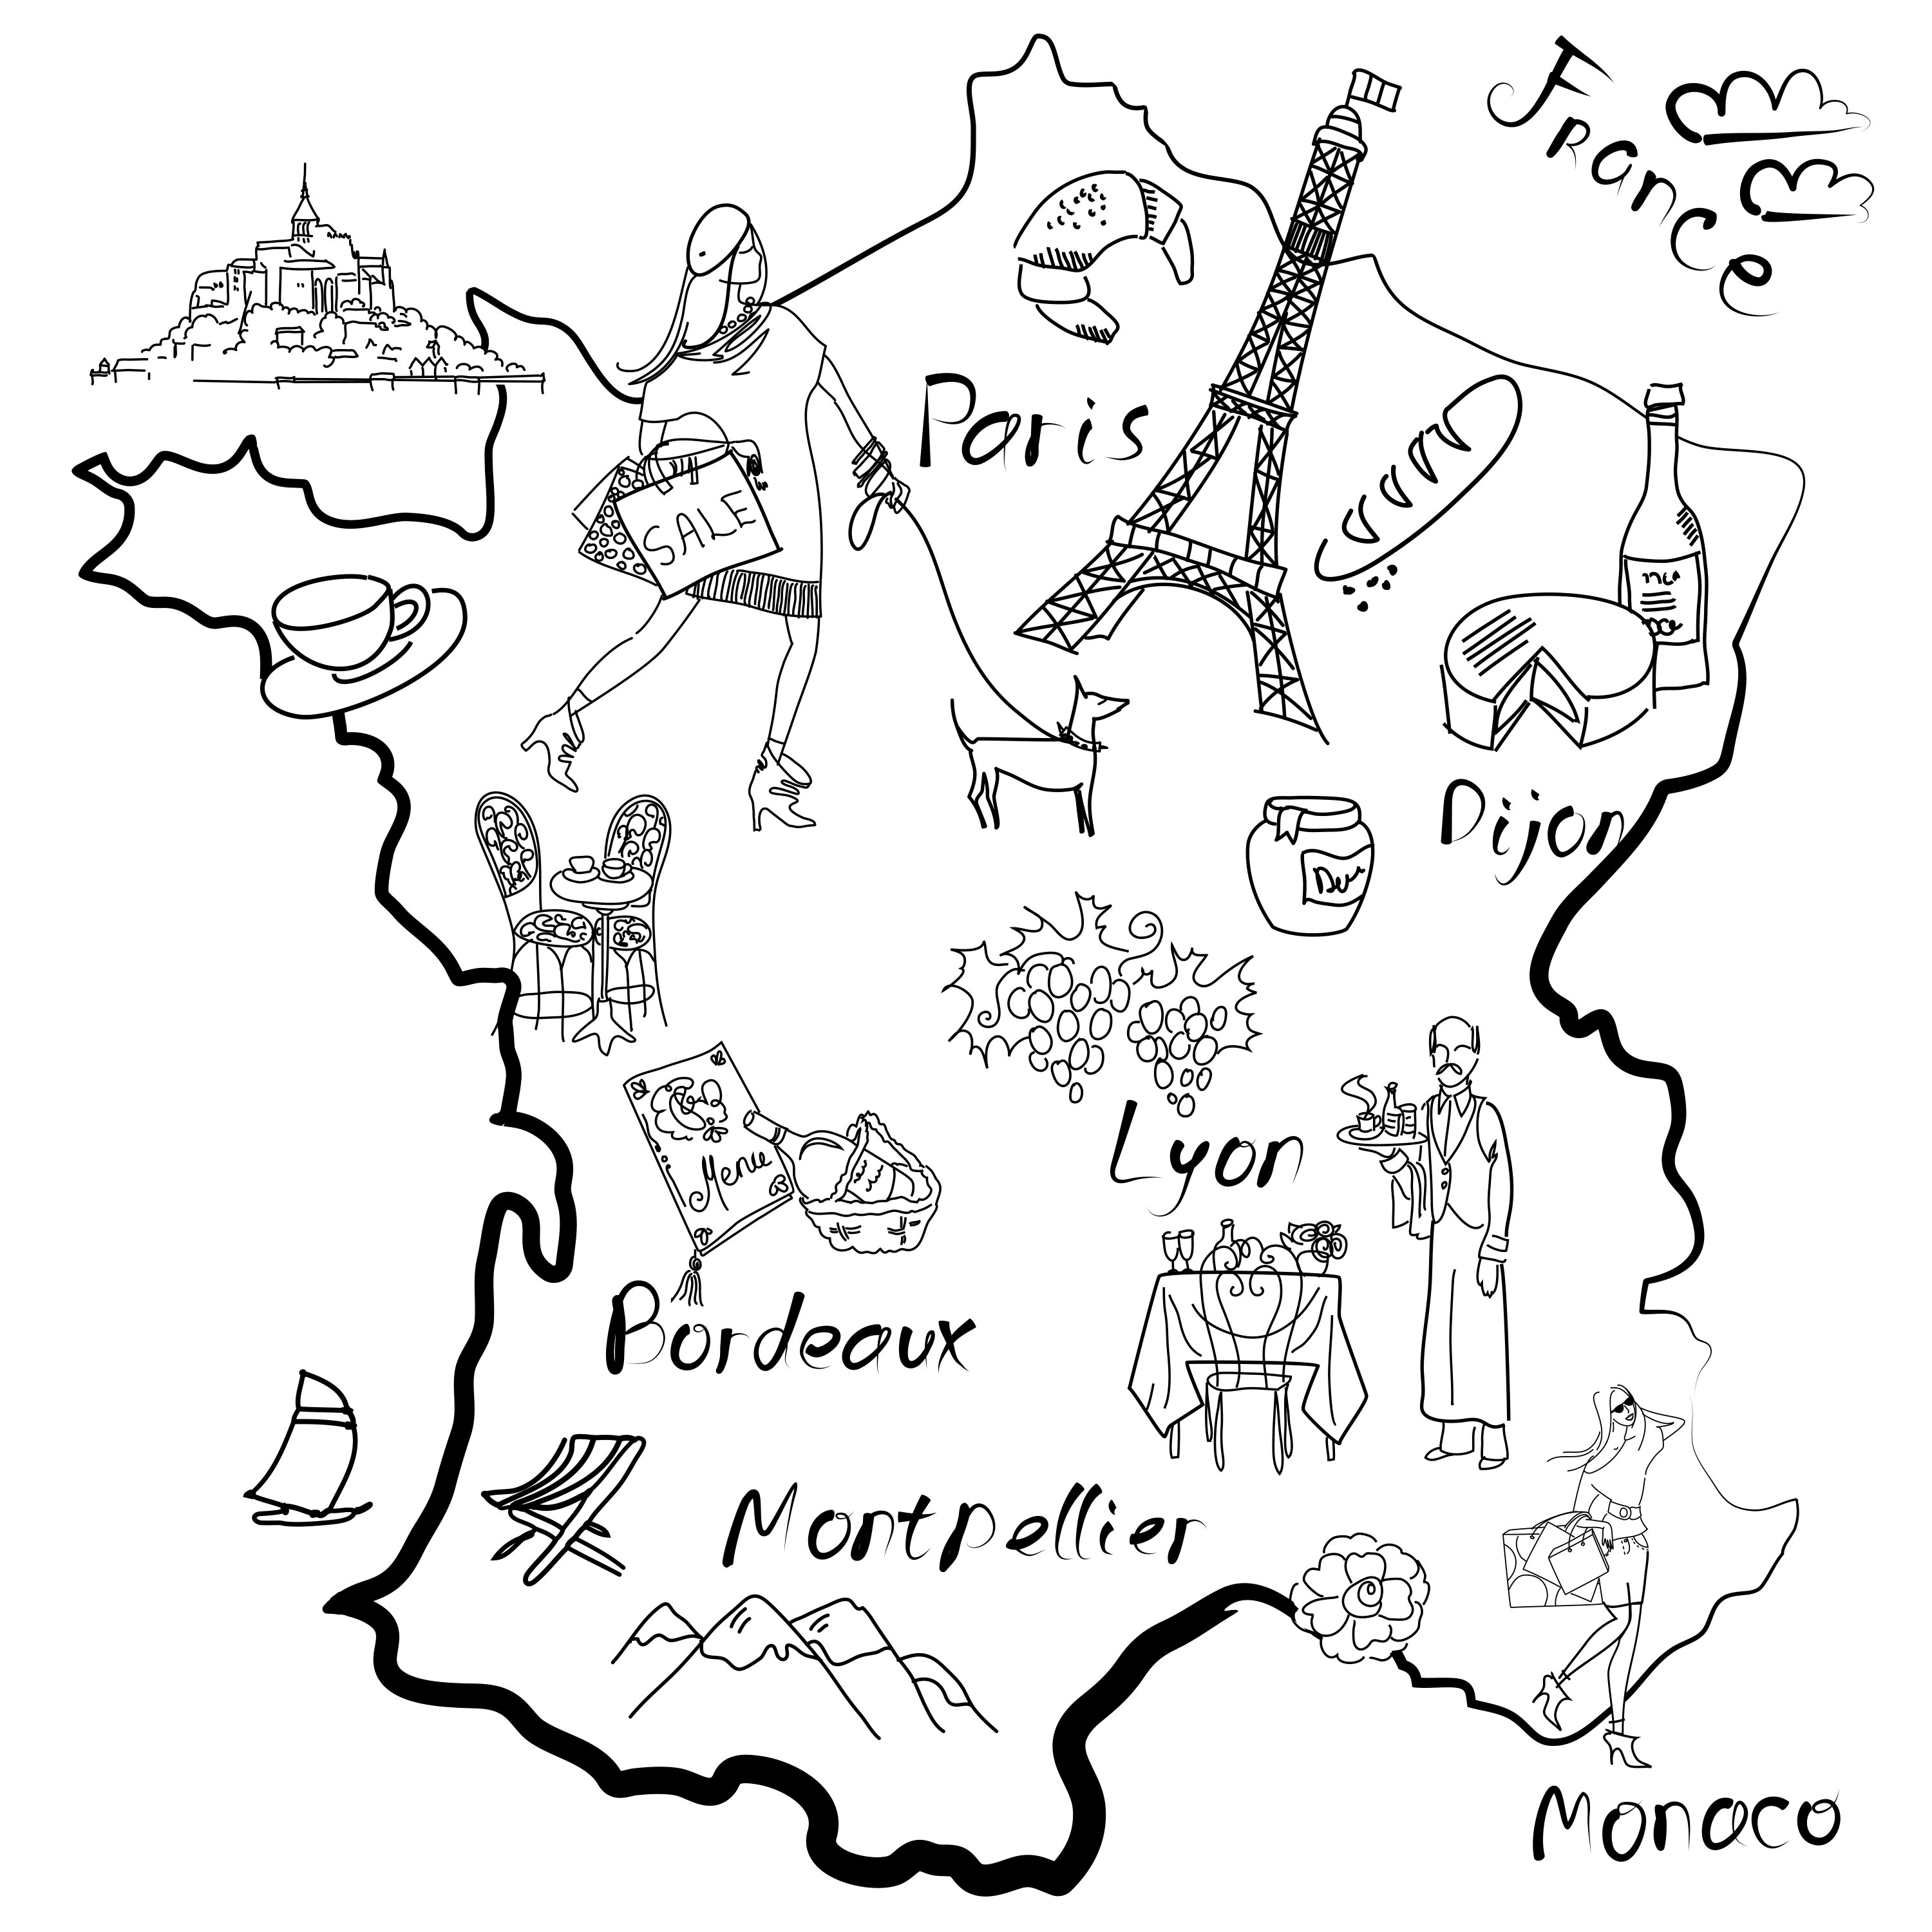 France
Paris
SALE
Dijon
Lyon
Menu
Bordeaux
Montpellier
Monaco